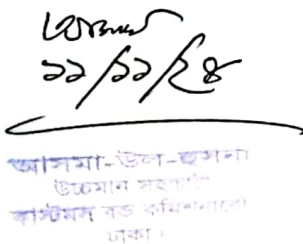 ১১/১১/২৪
আসমা-উল-হুসনা
উচ্চমান সহকারী
কাস্টমস বন্ড কমিশনারেট
ঢাকা।